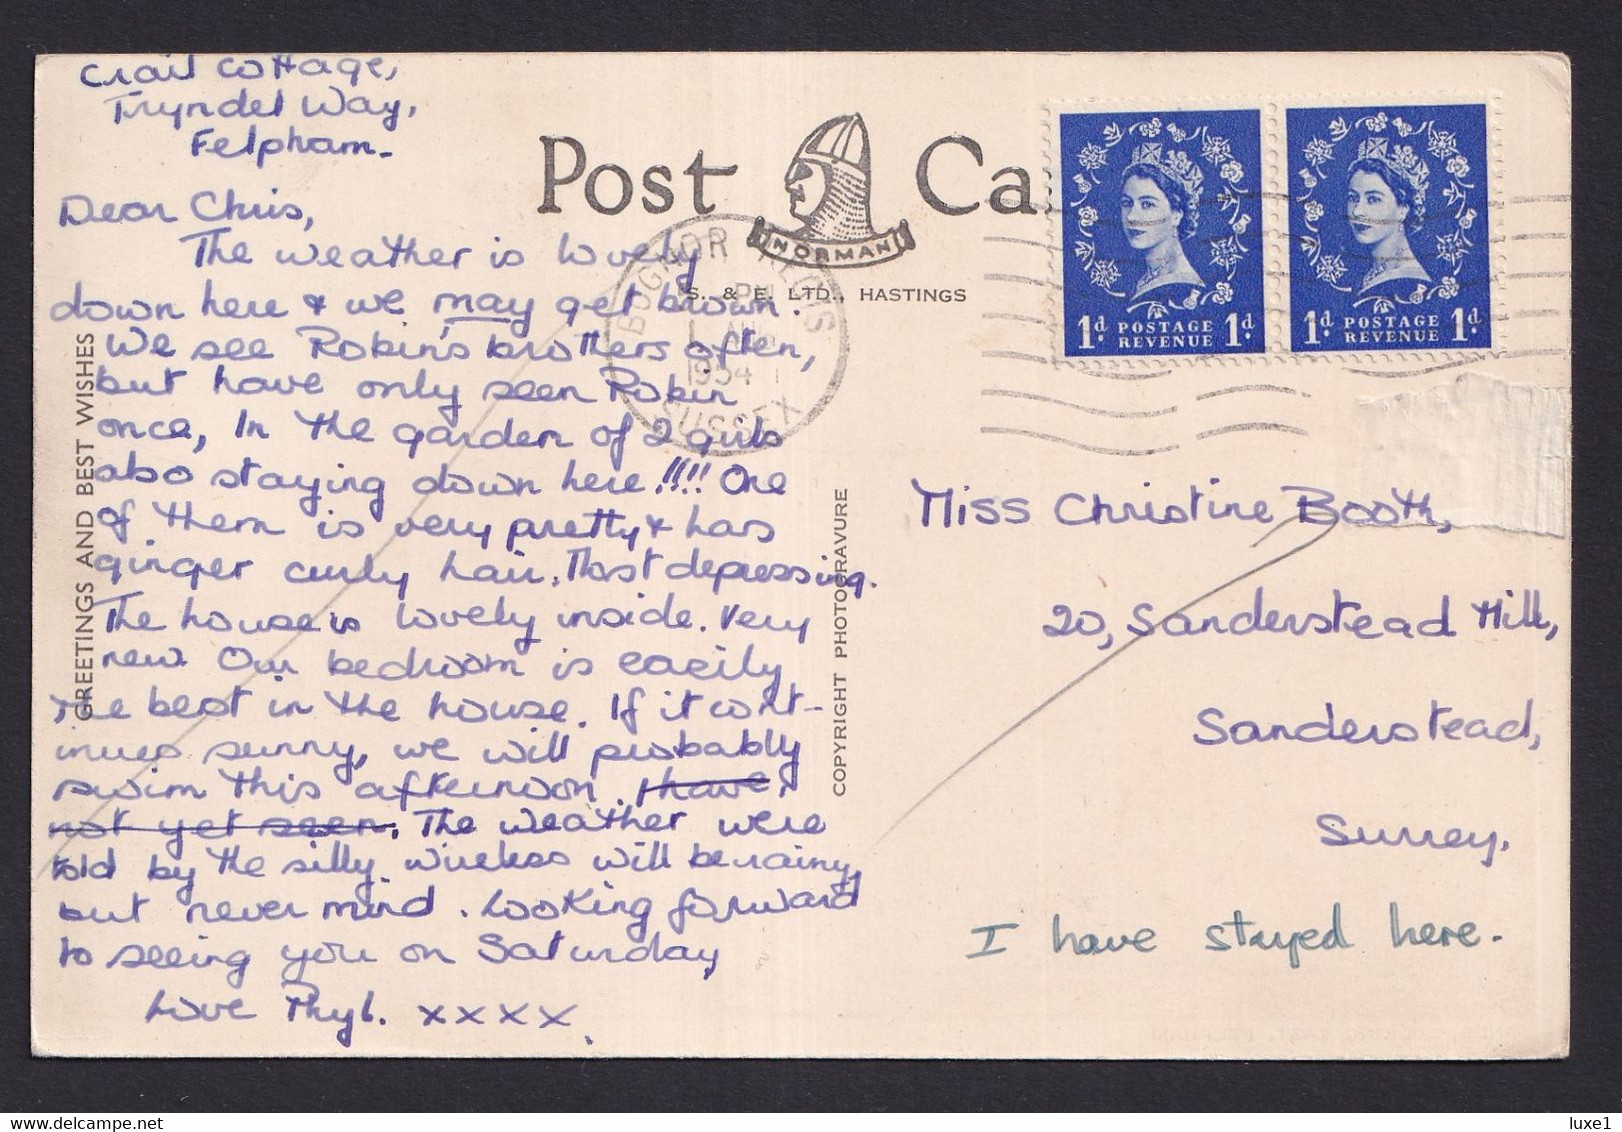 Crail Cottage,
Tryndel Way,
Felpham.
Dear Chris,
The weather is lovely
down here & we may get brown.
We see Robin's brothers often,
but have only seen Robin
once, In the garden of 2 girls
also staying down here!!!! One
of them is very pretty & has
ginger curly hair. Most depressing.
The house is lovely inside. Very
new Our bedroom is easily
the best in the house. If it cont-
inues sunny, we will probably
swim this afternoon. I have
not yet seen. The weather were
told by the silly wireless will be rainy,
but never mind. Looking forward
to seeing you on Saturday,
Love Phyl. xxxx.
GREETINGS AND BEST WISHES
Post Ca
NORMAN
S. & E. LTD., HASTINGS
BOGNOR REGIS
PM
1 AUG
1954
SUSSEX
COPYRIGHT PHOTOGRAVURE
1d POSTAGE REVENUE 1d
1d POSTAGE REVENUE 1d
Miss Christine Booth,
20, Sanderstead Hill,
Sanderstead,
Surrey.
I have stayed here.
luxe1